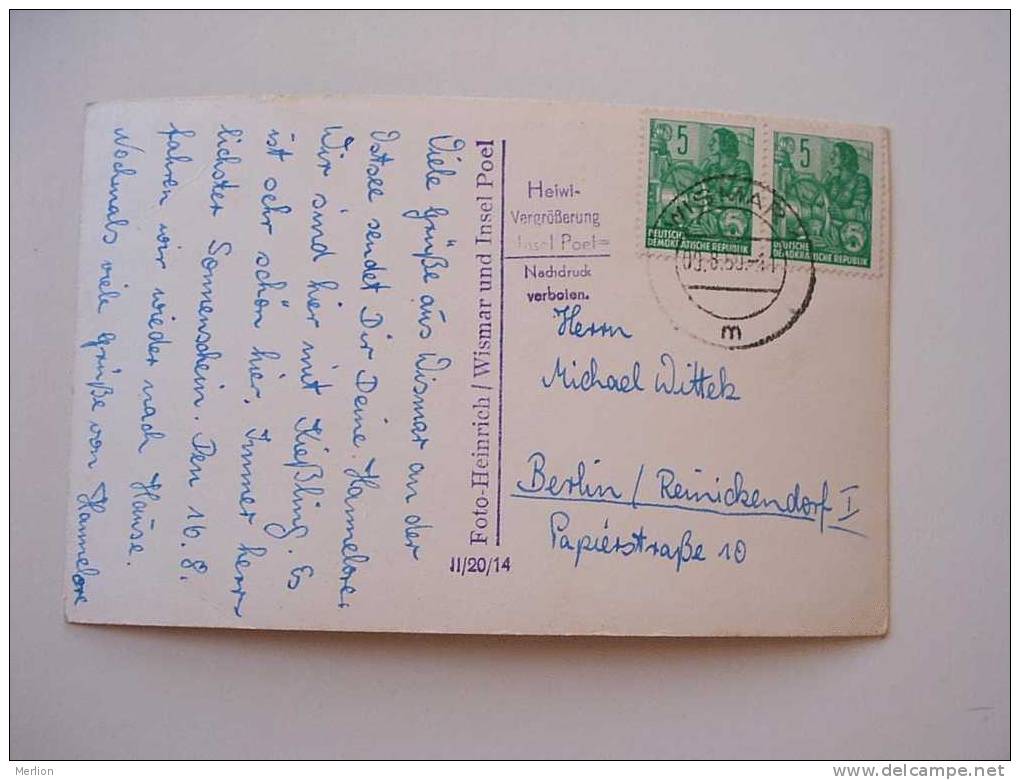 Viele Grüße aus Wismar an der
Ostsee sendet Dir Deine Hannelore.
Wir sind hier mit Kießling. Es
ist sehr schön hier. Immer herr-
lichster Sonnenschein. Den 16.8.
fahren wir wieder nach Hause.
Nochmals viele Grüße von Hannelore
Foto-Heinrich / Wismar und Insel Poel
II/20/14
Heiwi-
Vergrößerung
Insel Poel
Nachdruck
verboten.
5
5
DEUTSCHE
DEMOKRATISCHE REPUBLIK
5
5
DEUTSCHE
DEMOKRATISCHE REPUBLIK
WISMAR
m
Herrn
Michael Wittek
Berlin / Reinickendorf I
Papierstraße 10
Merlion
delcampe.net